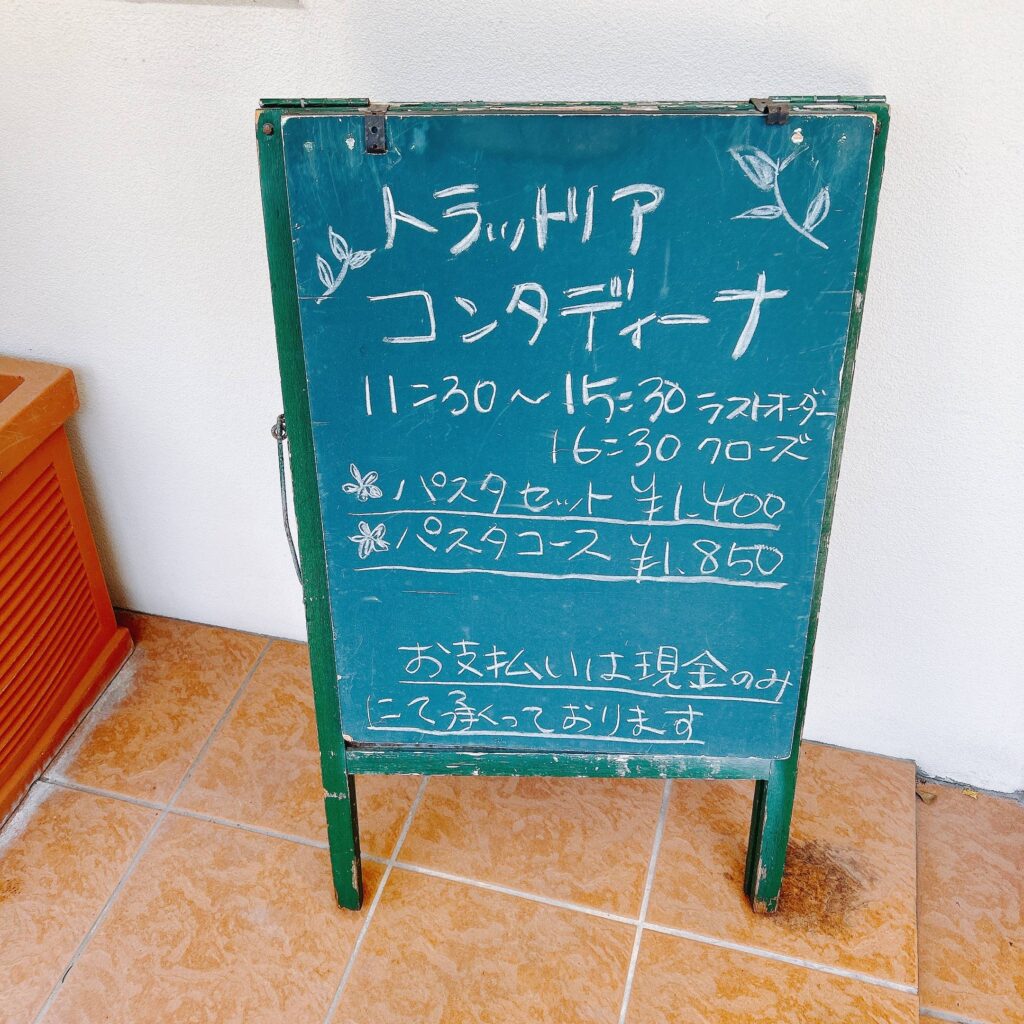 トラットリア
コンタディーナ
11:30～15:30 ラストオーダー
16:30 クローズ
パスタセット ¥1,400
パスタコース ¥1,850
お支払いは現金のみ
にて承っております